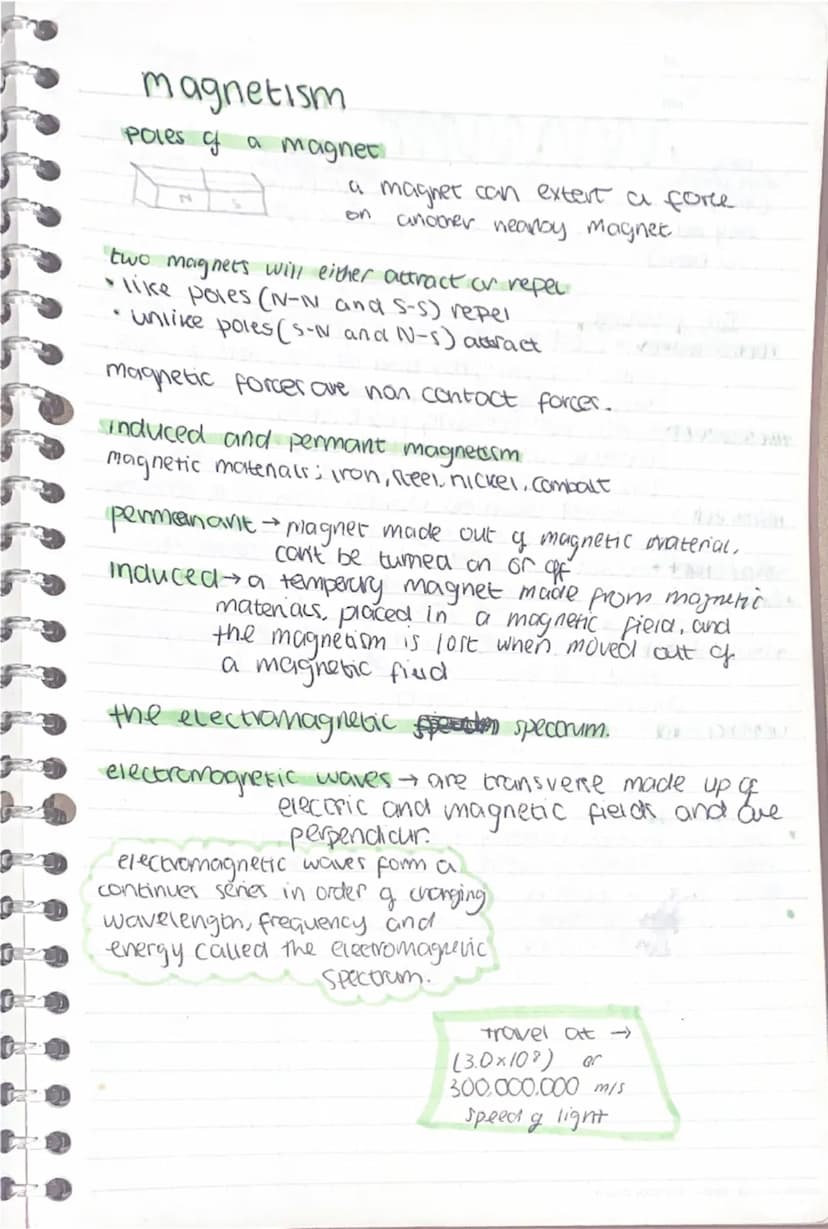 magnetism
poles of a magnet
N S
a magnet can extert a force
on another nearby magnet
two magnets will either attract or repel
• like poles (N-N and S-S) repel
• unlike poles (S-N and N-S) attract
magnetic forces are non contact forces.
induced and permant magnetism
magnetic materials; iron, steel, nickel, combalt
permenant → magnet made out of magnetic material,
cant be turned on or off
induced → a tempery magnet made from magnetic
materials, placed in a magnetic field, and
the magnetism is lost when moved out of
a magnetic field
the electromagnetic spectrum.
electromagnetic waves → are transverse made up of
electric and magnetic fields and are
perpendicur.
electromagnetic waves form a
continues series in order of changing
wavelength, frequency and
energy called the electromagnetic
spectrum.
travel at →
(3.0×10⁸) or
300,000,000 m/s
speed of light